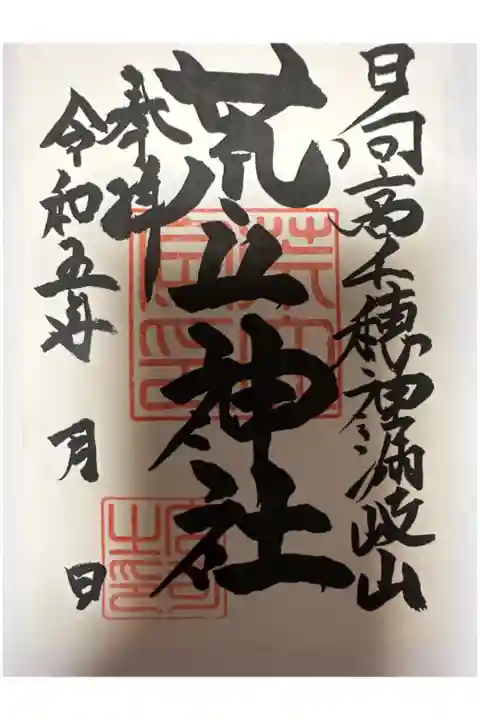 日向高千穂神漏岐山
荒立神社
奉拝
令和五年 月 日